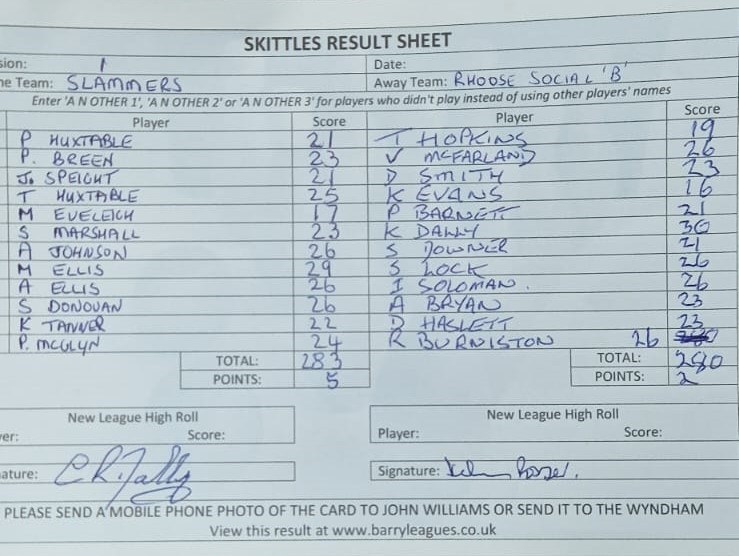 SKITTLES RESULT SHEET
sion: 1 Date:
ne Team: SLAMMERS Away Team: RHOOSE SOCIAL 'B'
Enter 'A N OTHER 1', 'A N OTHER 2' or 'A N OTHER 3' for players who didn't play instead of using other players' names
Player Score Player Score
P HUXTABLE 21 T HOPKINS 19
P. BREEN 23 V MCFARLAND 26
Jo SPEIGHT 21 D SMITH 23
T HUXTABLE 25 K EVANS 16
M EVELEIGH 17 P BARNETT 21
S MARSHALL 23 K DALLY 30
A JOHNSON 26 S DOWNER 21
M ELLIS 29 S LOCK 26
A ELLIS 26 I SOLOMAN. 26
S DONOVAN 26 A BRYAN 23
K TANNER 22 D HASLETT 23
P. MCGLYN 24 R BURNISTON 26
TOTAL: 283 TOTAL: 280
POINTS: 5 POINTS: 2
New League High Roll New League High Roll
er: Score: Player: Score:
ature: Signature:
PLEASE SEND A MOBILE PHONE PHOTO OF THE CARD TO JOHN WILLIAMS OR SEND IT TO THE WYNDHAM
View this result at www.barryleagues.co.uk